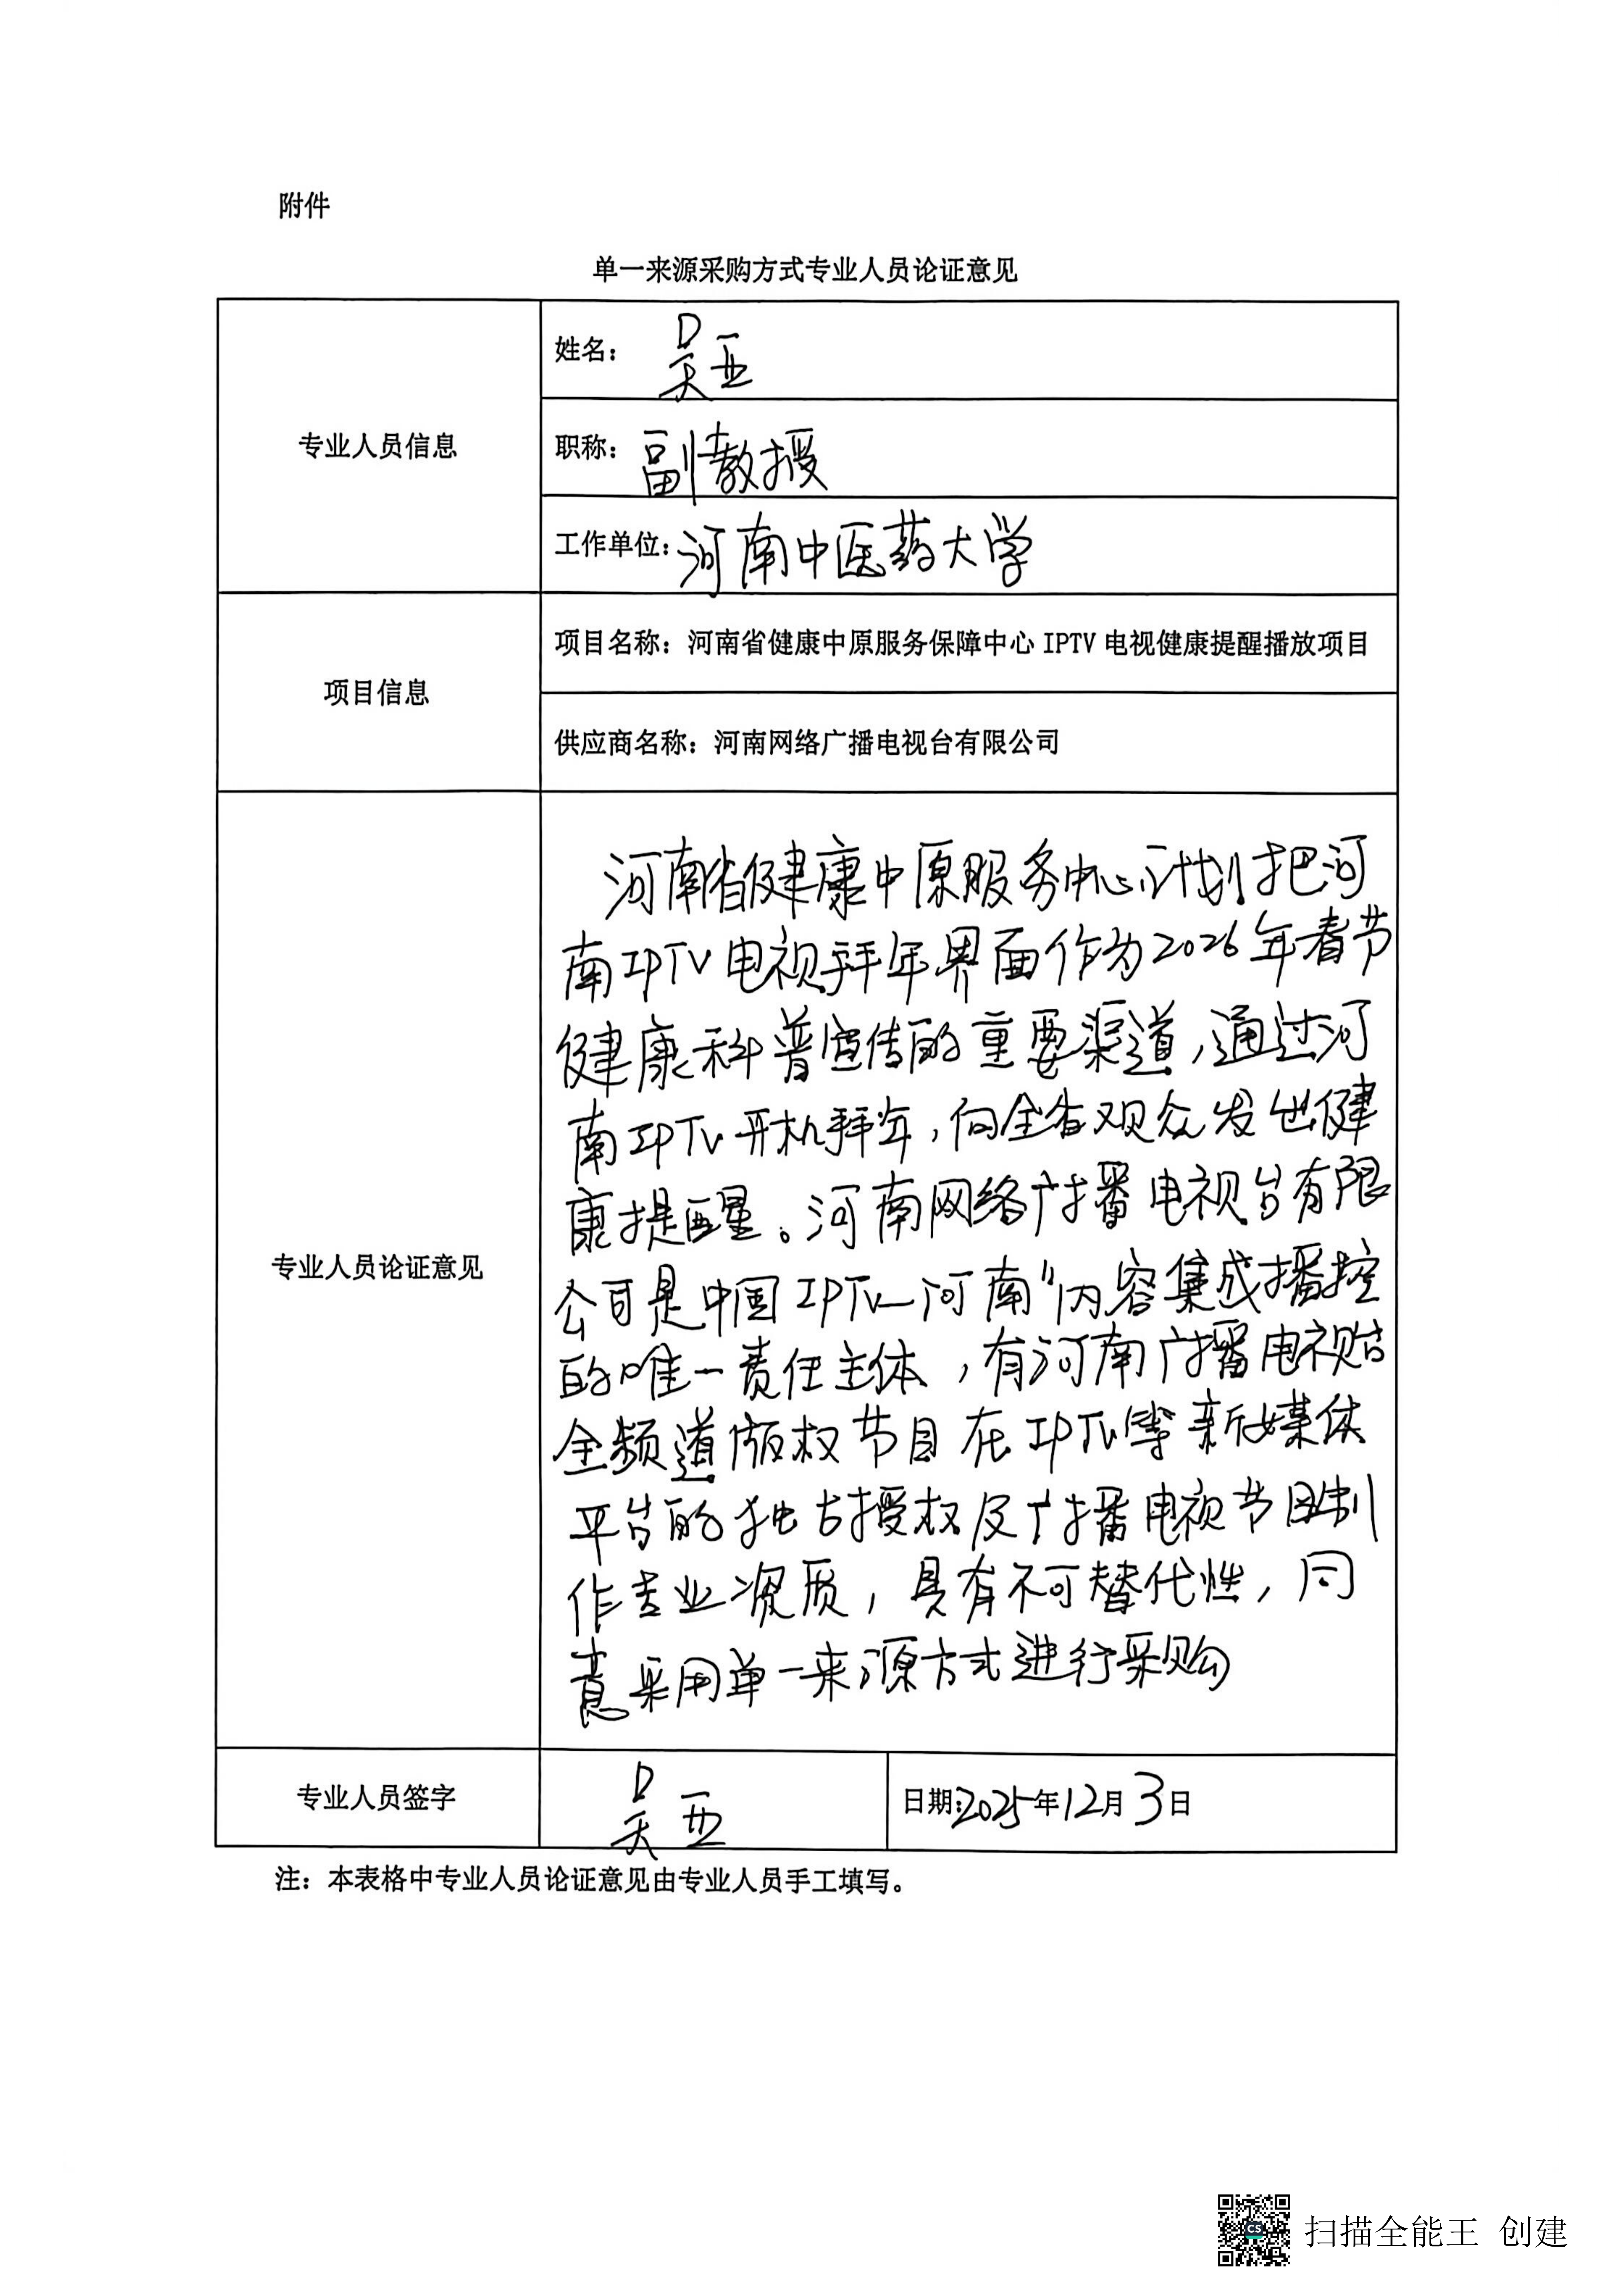 附件
单一来源采购方式专业人员论证意见
专业人员信息
姓名： 吴亚
职称： 副教授
工作单位： 河南中医药大学
项目信息
项目名称：河南省健康中原服务保障中心 IPTV 电视健康提醒播放项目
供应商名称：河南网络广播电视台有限公司
专业人员论证意见
河南省健康中原服务中心计划把河
南IPTV电视拜年界面作为2026年春节
健康科普宣传的重要渠道，通过河
南IPTV开机拜年，向全省观众发出健
康提醒。河南网络广播电视台有限
公司是中国IPTV—河南”内容集成播控
的唯一责任主体，有河南广播电视台
全频道版权节目在IPTV等新媒体
平台的独占授权及广播电视节目制
作专业资质，具有不可替代性，同
意采用单一来源方式进行采购
专业人员签字
吴亚
日期：2025年12月3日
注：本表格中专业人员论证意见由专业人员手工填写。
扫描全能王 创建